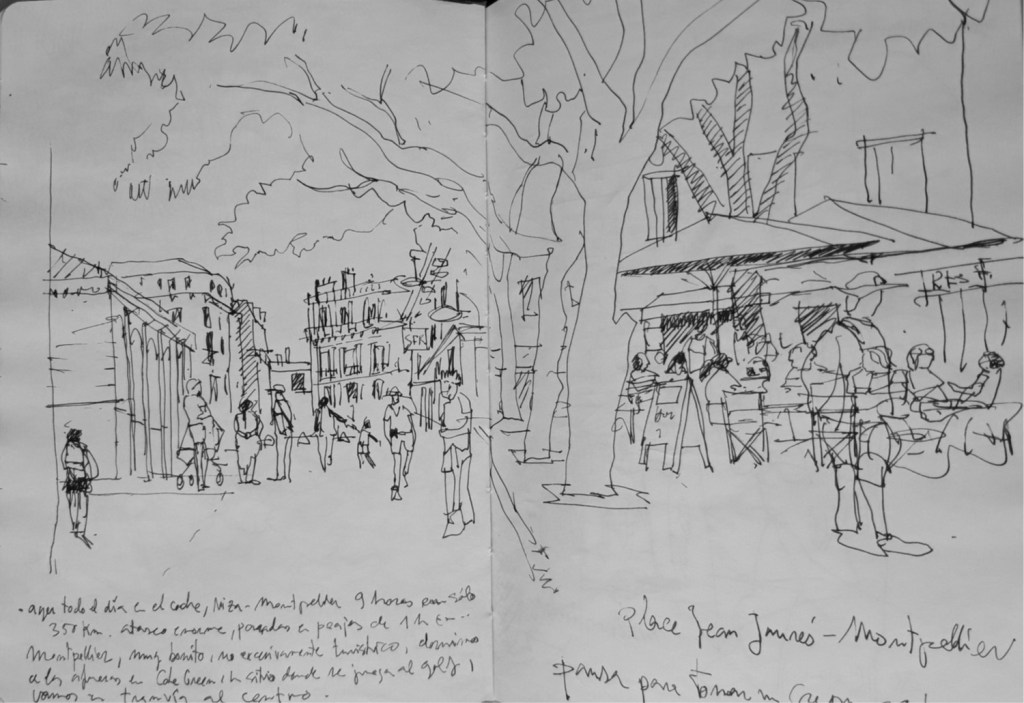 SFR
- ayer todo el día en el coche, Niza-Montpellier 9 horas para sólo
350 km. atasco enorme, parados en peajes de 1 h
Montpellier, muy bonito, no excesivamente turístico, dormimos
a las afueras en Cote Green, un sitio donde se juega al golf,
vamos en tranvía al centro.
Place Jean Jaurés - Montpellier
pausa para tomar un